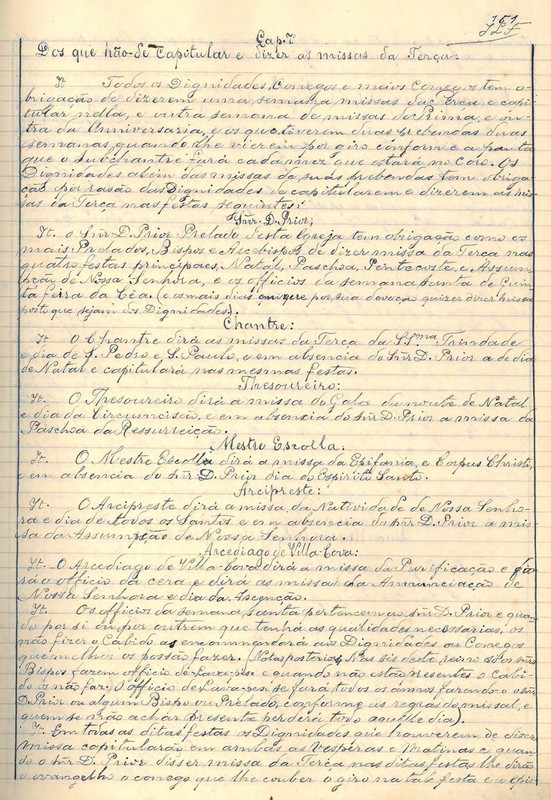 Cap. 7
Dos que hão-de Capitular e dizer as missas da Terça.
It. Todos os Dignidades, Conegos e meios Conegos tem o-
brigação de dizerem uma semana missas da Terça e capi-
tular nella, e outra semana de missas de Prima, e ou-
tra da Anniversaria, e os que tiverem duas prebendas duas
semanas, quando lhe vierem por giro conforme a pauta
que o Subchantre fará cada mez que estará no Coro. Os
Dignidades alem das missas de suas prebendas tem obriga-
ção por rasão das Dignidades de capitularem e dizerem as mis-
sas da Terça nas festas seguintes:
Snr. D. Prior;
It. O Snr. D. Prior Prelado desta Igreja tem obrigação como os
mais Prelados, Bispos e Arcebispos de dizer missa da Terça nas
quatro festas principaes, Natal, Paschoa, Pentacoste, e Assum-
pção de Nossa Senhora, e os officios da semana santa de Quin-
ta feira da Cêa. (e os mais dias em que por sua devoção quizer dizer missa
posto que sejam dos Dignidades).
Chantre:
It. O Chantre dirá as missas da Terça da SS.ma Trindade
e dia de S. Pedro e S. Paulo, e em absencia do Snr. D. Prior a de dia
de Natal e capitulará nas mesmas festas.
Thesoureiro:
It. O Thesoureiro dirá a missa do Galo da noute de Natal
e dia da Circumcisão, e em absencia do Snr. D. Prior a missa da
Paschoa da Ressurreição.
Mestre Escolla:
It. O Mestre Escolla dirá a missa da Epifania, e Corpus Christi,
e em absencia do Snr. D. Prior dia do Espirito Santo.
Arcipreste:
It. O Arcipreste dirá a missa, da Natevidade de Nossa Senho-
ra e dia de todos os Santos e em absencia do Snr. D. Prior a mis-
sa da Assumpção de Nossa Senhora.
Arcediago de Villa-Cova:
It. O Arcediago de Villa-Cova dirá a missa da Purificação e fa-
rá o officio da cera e dirá as missas da Annunciação de
Nossa Senhora e dia da Ascenção.
It. Os officios da semana santa pertencem ao Snr. D. Prior e quan-
do por si ou por outrem que tenha as qualidades necessarias, os
não fizer o Cabido as encommendará aos Dignidades ou Conegos
que melhor os possão fazer. (Nota posterior; N'os bis deste reino só os snrs
Bispos fazem officio de Lavapes e quando não estão presentes o Cabi-
do os não faz. O officio de Lavapes se fará todos os annos fazendo-o o snr
D. Prior ou algum Bispo ou Prelado, conforme as regras do missal, e
quem se não achar presente perderá todo aquelle dia).
It. Em todas as ditas festas os Dignidades que houverem de dizer
missa capitularão em ambas as Vesperas e Matinas e quan-
do o snr. D. Prior disser missa da Terça nas ditas festas lhe dirão
o evangelho o conego que lhe couber o giro na tal festa e a epis-